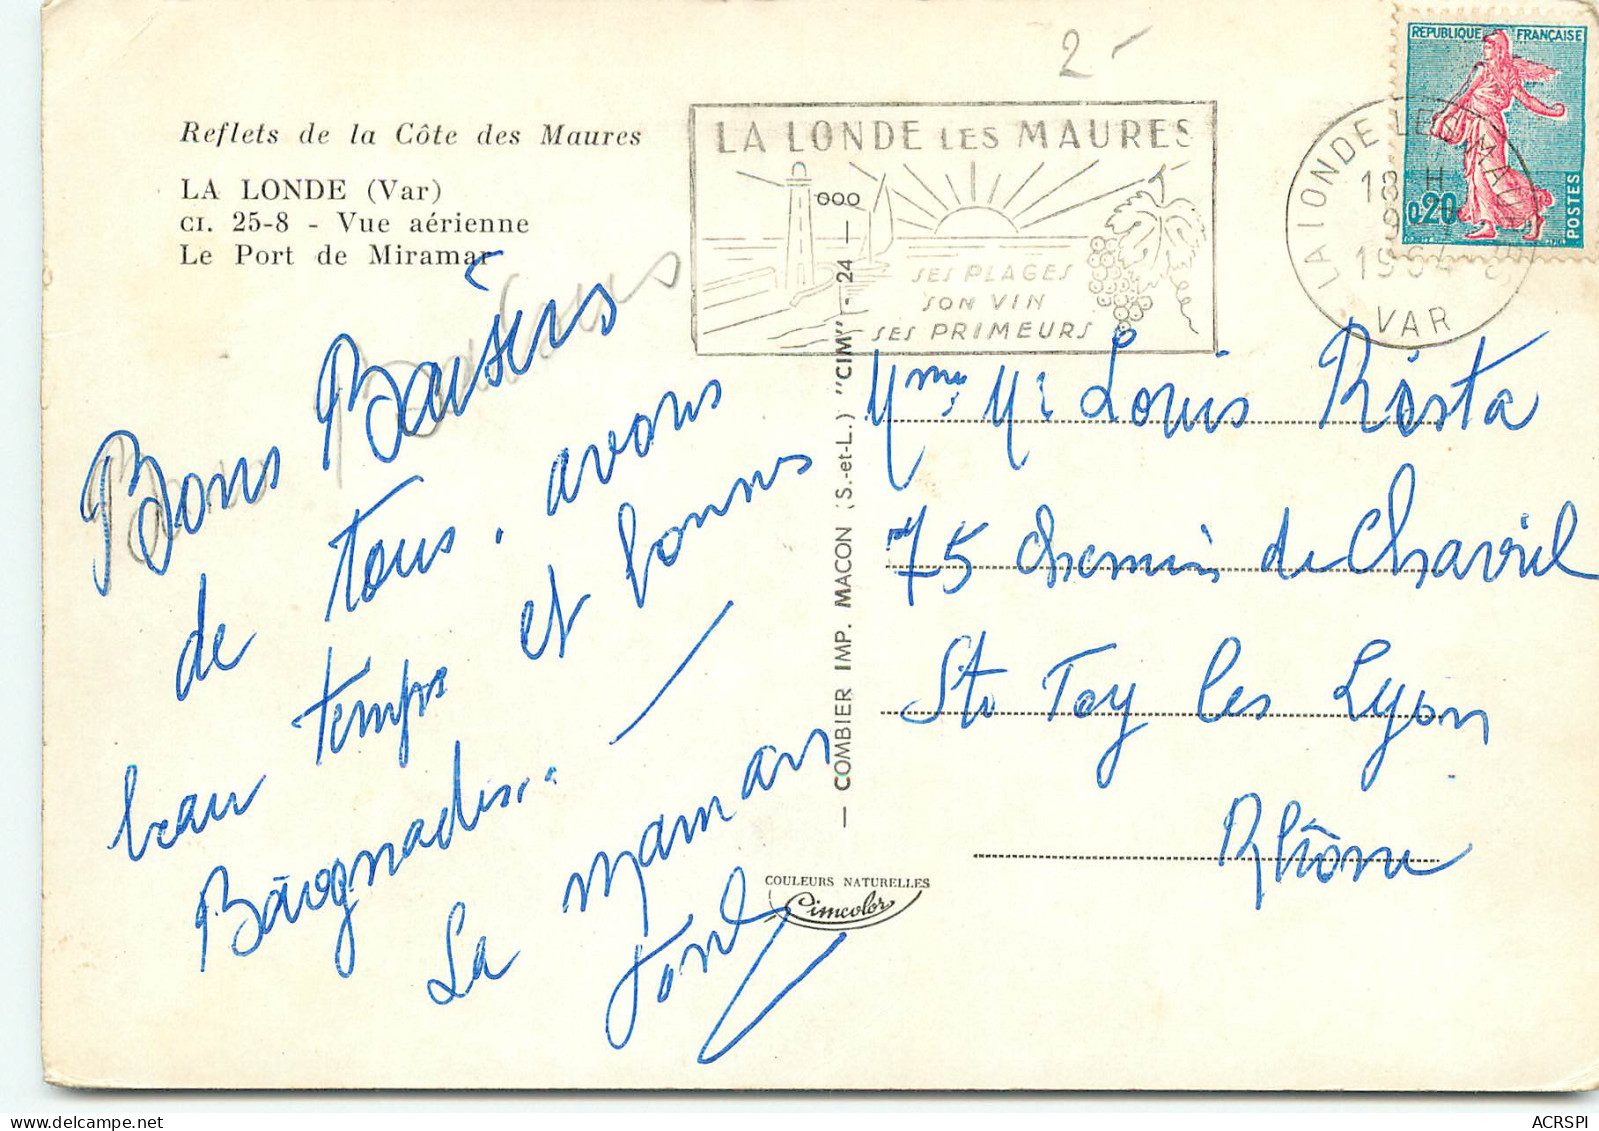 2-
Reflets de la Côte des Maures
LA LONDE (Var)
CI. 25-8 - Vue aérienne
Le Port de Miramar
LA LONDE LES MAURES
SES PLAGES
SON VIN
SES PRIMEURS
REPUBLIQUE FRANÇAISE
0,20
POSTES
LA LONDE LES MAURES
18 H
9
1964
VAR
Bons Baisers
de tous. avons
beau temps et bonnes
Baignades..
La maman
COMBIER IMP. MACON (S.-et-L.) "CIM" - 24 -
COULEURS NATURELLES
Cimcolor
Mme Mr Louis Rosta
75 chemin de Chavril
Ste Foy les Lyon
Rhône
ACRSPI